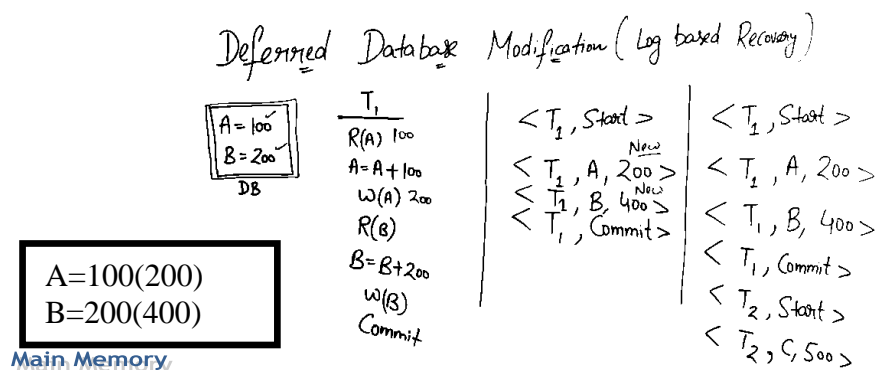 Deferred Database Modification (Log based Recovery)
A = 100 ✓
B = 200 ✓
DB
T₁
R(A) 100
A = A + 100
W(A) 200
R(B)
B = B + 200
W(B)
Commit
< T₁, Start >
New
< T₁, A, 200 >
New
< T₁, B, 400 >
< T₁, Commit >
< T₁, Start >
< T₁, A, 200 >
< T₁, B, 400 >
< T₁, Commit >
< T₂, Start >
< T₂, C, 500 >
A=100(200)
B=200(400)
Main Memory